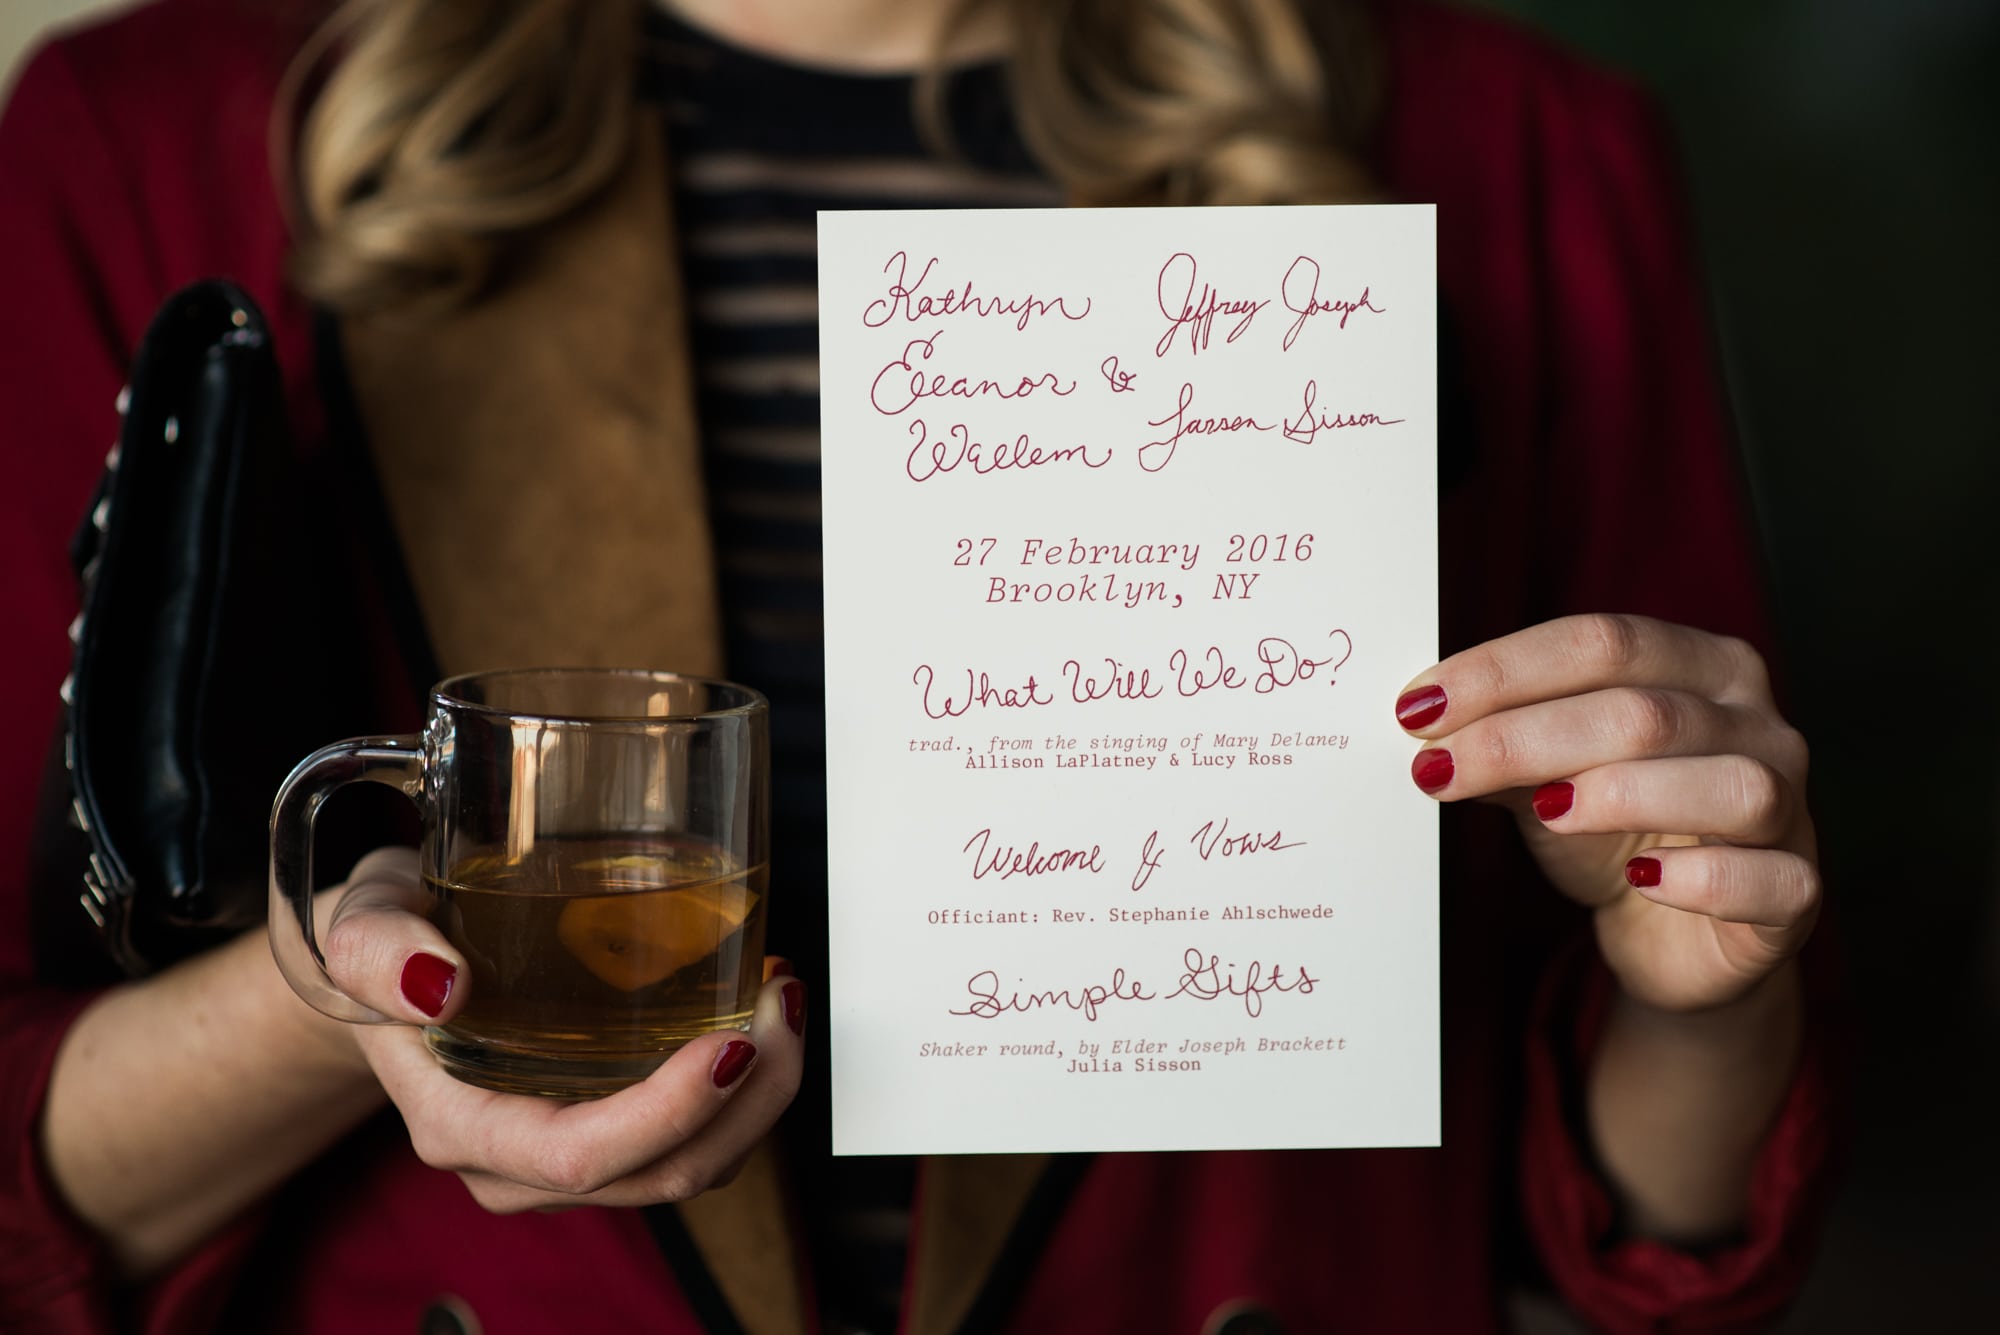 Kathryn
Eleanor &
Waelem
Jeffrey Joseph
Larsen Sisson
27 February 2016
Brooklyn, NY
What Will We Do?
trad., from the singing of Mary Delaney
Allison LaPlatney & Lucy Ross
Welcome & Vows
Officiant: Rev. Stephanie Ahlschwede
Simple Gifts
Shaker round, by Elder Joseph Brackett
Julia Sisson